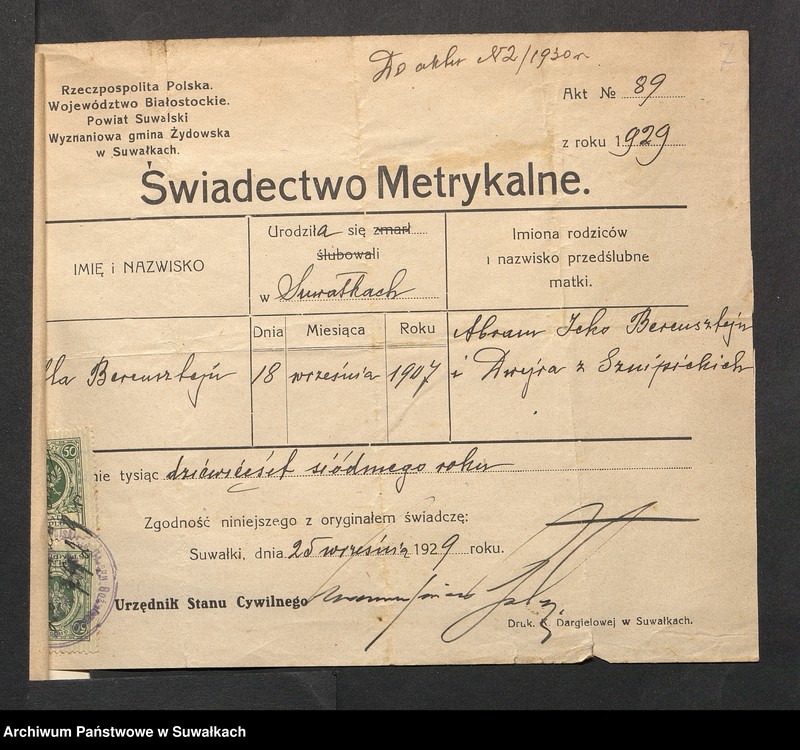 Do aktu N2/1930 r.
7
Rzeczpospolita Polska.
Województwo Białostockie.
Powiat Suwalski
Wyznaniowa gmina Żydowska
w Suwałkach.
Akt № 89
z roku 1929
Świadectwo Metrykalne.
IMIĘ i NAZWISKO
Urodziła się zmarł
ślubowali
w Suwałkach
Imiona rodziców
i nazwisko przedślubne
matki.
Dnia Miesiąca Roku
Abram Icko Berensztejn
i Dwejra z
Berensztejn 18 września 1907
nie tysiąc dziewięćset siódmego roku
Zgodność niniejszego z oryginałem świadczę:
Suwałki, dnia 25 września 1929 roku.
Urzędnik Stanu Cywilnego
Druk. K. Dargielowej w Suwałkach.
50
50
Archiwum Państwowe w Suwałkach